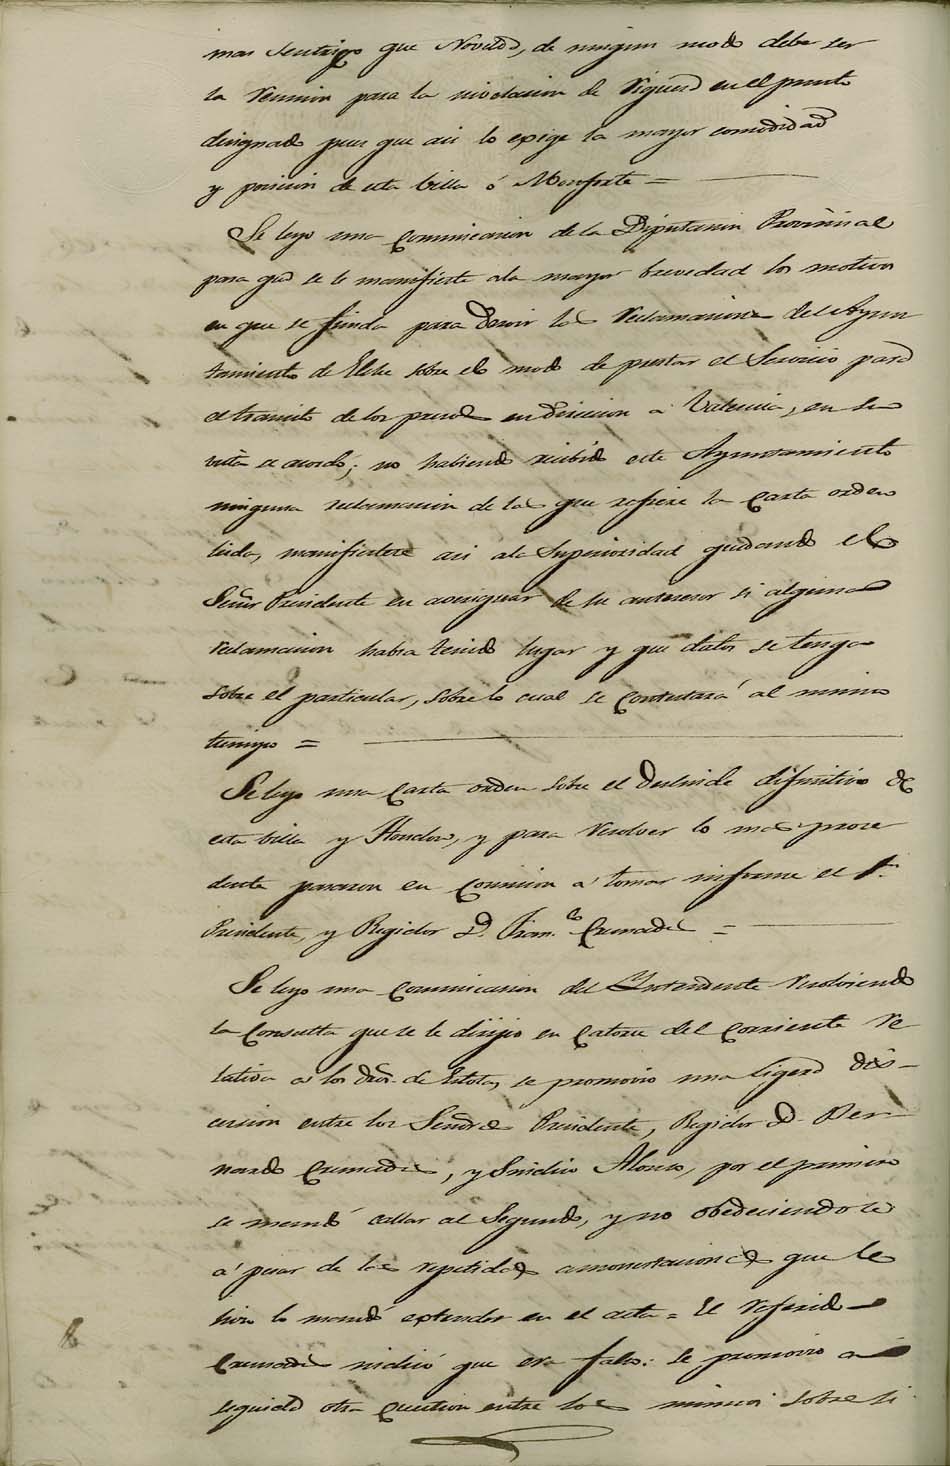 mas sentrico que Novelda, de ningun modo debe ser
la reunion para la nivelacion de riqueza en el punto
designado pues que asi lo exige la mayor comodidad
y posicion de esta billa ó Monforte =
Se leyo una comunicacion de la Diputacion Provincial
para que se le manifieste ala mayor brevedad los motivos
en que se funda para desoir las reclamaciones del Ayun
tamiento de Elche sobre el modo de prestar el servicio para
el transito de los presos en direccion a Valencia, en su
vista se acordó; no habiendo recibido este Ayuntamiento
ninguna reclamacion de las que refiere la carta orden
leida, manifiestese asi ala Superioridad quedando el
Señor Presidente en averiguar de su antecesor si alguna
reclamacion habia tenido lugar y que datos se tengan
sobre el particular, sobre lo cual se contestará al mismo
tiempo =
Se leyo una carta orden sobre el deslinde difinitivo de
esta billa y Hondon, y para resolver lo mas proce
dente pasaron en comision a tomar informe el Sr.
Presidente, y Regidor D. Fran.co Cremades =
Se leyo una comunicacion del Yntendente resolviendo
la consulta que se le dirijio en catorce del corriente re-
lativa a los dros. de , se promovio una ligera dis-
cusion entre los Señores Presidente, Regidor D. Ber-
nardo Cremades, y Sindico Alonso, por el primero
se mandó callar al Segundo, y no obedeciendole
á pesar de las repetidas amonestaciones que le
hizo lo mandó estender en el acta = El referido
Cremades indicó que era falso: se promovio en
seguida otra cuestion entre los mismos sobre si